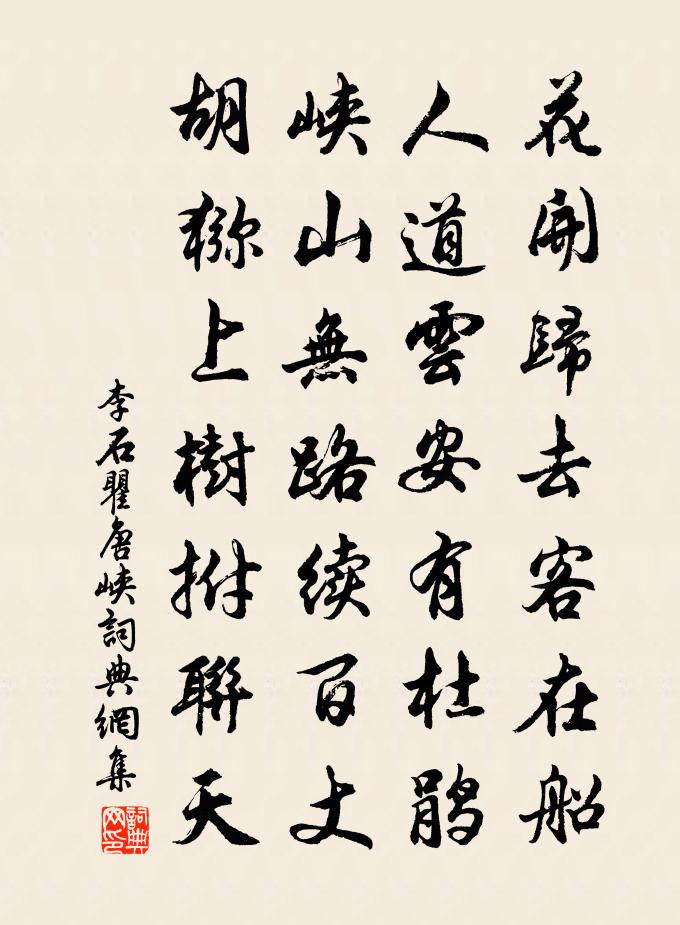 花開歸去客在船
人道雲安有杜鵑
峽山無路续百丈
胡猕上樹拊聯天
李石瞿唐峽詞典網集
詞典
网印